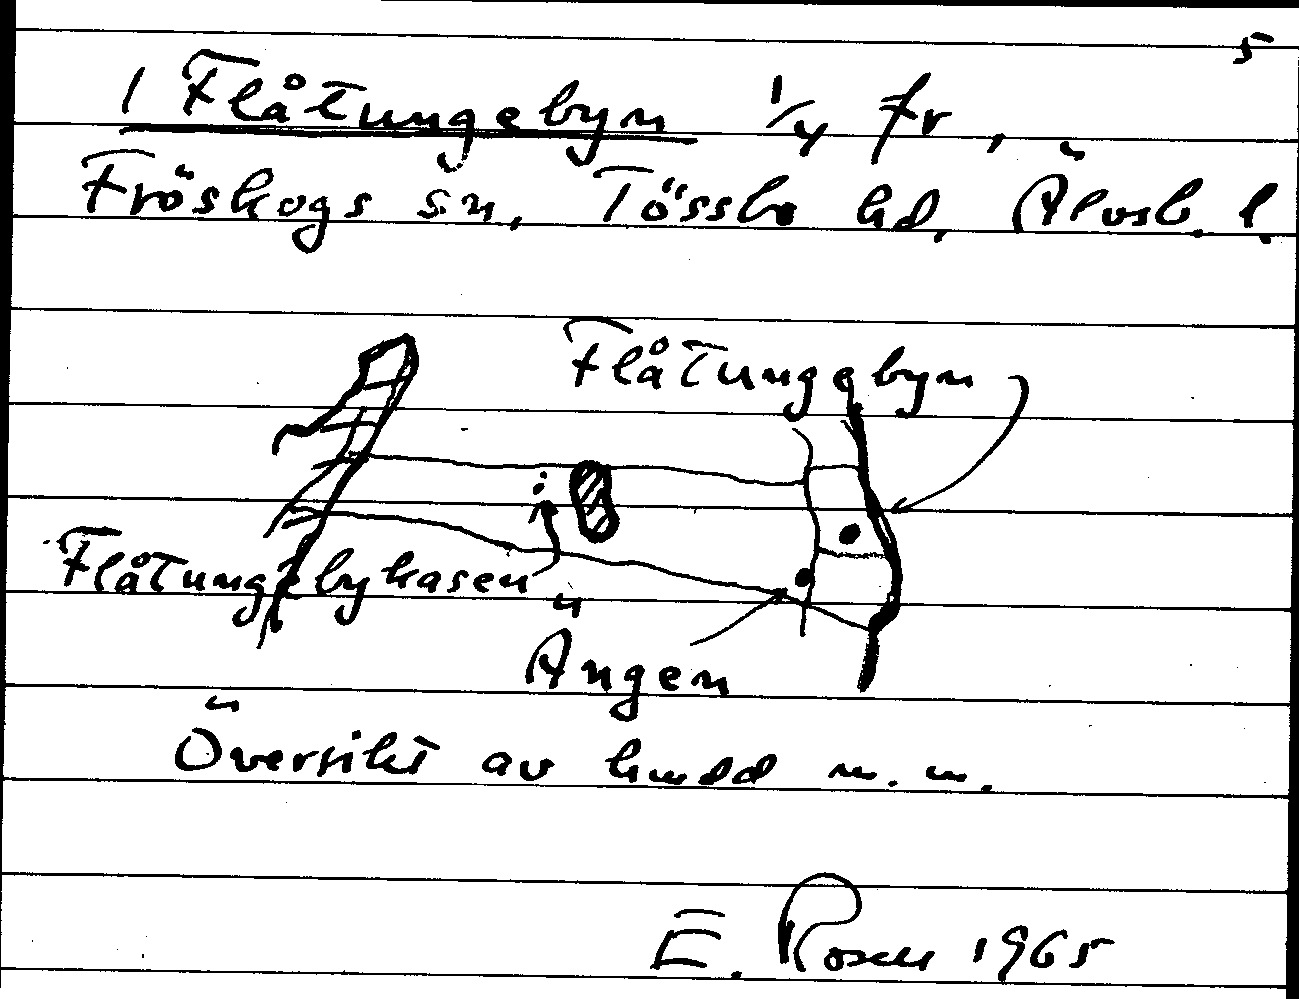 5
1 Flåtungebyn 1/4 fr,
Fröskogs sn, Tössbo hd, Älvsb. l.
Flåtungebyn
Flåtungebykasen
Ängen
Översikt av hmdd m. m.
E. Rosell 1965